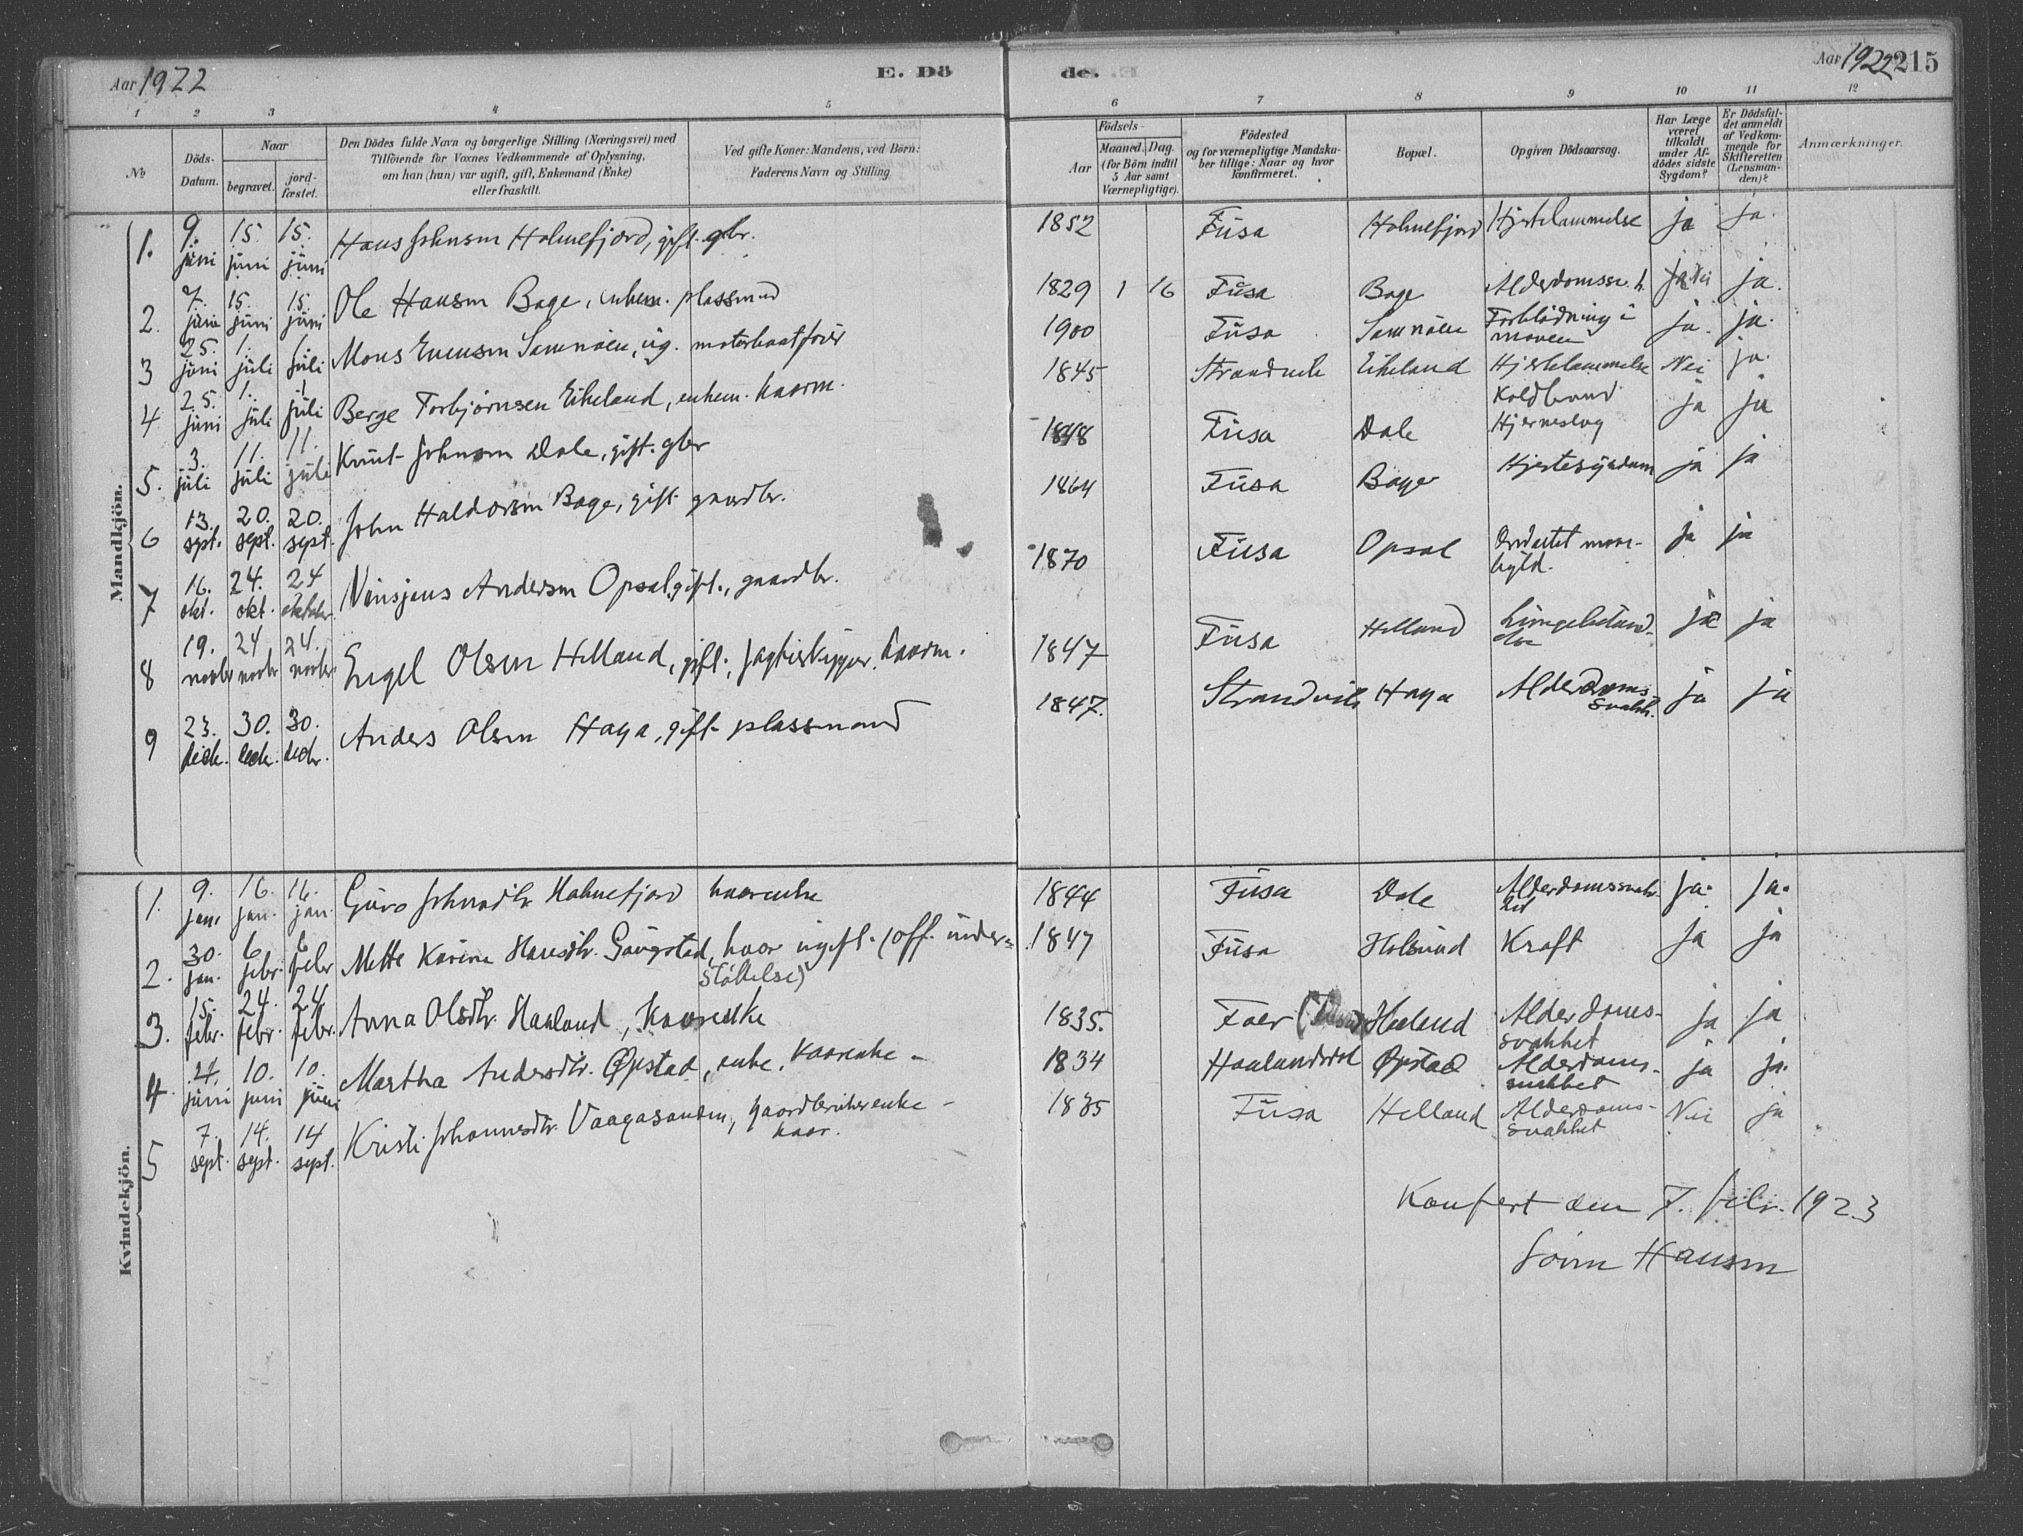 Aar 1922
E. Dö
de.
Aar 1922 215
1 2 3 4 5 6 7 8 9 10 11 12
No
Döds-Datum.
Naar
begravet.
jord-fæstet.
Den Dödes fulde Navn og borgerlige Stilling (Næringsvei) med
Tilföiende for Voxnes Vedkommende af Oplysning,
om han (hun) var ugift, gift, Enkemand (Enke)
eller fraskilt.
Ved gifte Koner: Mandens, ved Börn:
Faderens Navn og Stilling
Födsels-
Aar
Maaned. Dag.
(for Börn indtil
5 Aar samt
Værnepligtige).
Födested
og for værnepligtige Mandska-
ber tillige: Naar og hvor
konfirmeret.
Bopæl.
Opgiven Dödsaarsag.
Har Læge
været
tilkaldt
under Af-
dödes sidste
Sygdom?
Er Dödsfal-
det anmeldt
af Vedkom-
mende for
Skifteretten
(Lensman-
den)?
Anmærkninger.
Mandkjön.
1. 9. juni 15. juni 15. juni Hans Johnsen Holmefjord, gift. gbr. 1852 Fusa Holmefjord Hjertelammelse ja ja.
2. 7. juni 15. juni 15. juni Ole Hansen Bage, enkem. plassmand 1829 1 16 Fusa Bage Alderdomssv.h. Nei ja.
3 25. juni 1. juli 1. juli Mons Samnöen, ug. motorbaatförer 1900 Fusa Samnöen Forblödning i maven ja. ja.
4 25. juni 1. juli 1. juli Berge Torbjørnsen Eikeland, enkem. kaarm. 1845 Strandvik Eikeland Hjertelammelse Nei ja.
Koldbrand
5. 3. juli 11. juli 11. juli Knut Johnsen Dale, gift. gbr 1848 Fusa Dale Hjerneslag ja ja
6 13. sept. 20. sept. 20. sept. John Haldorsen Bage, gift gaardbr. 1864 Fusa Bage Hjertesygdom ja ja
7 16. okt. 24. okt. 24 oktober Ninsjans Andersen Opsal, gift., gaardbr. 1870 Fusa Opsal ja ja
8 19. novbr 24 novbr 24. novbr Engel Olsen Helland, gift., jagteskipper. kaarm. 1847 Fusa Helland Lungebetænd-else ja ja
9 23. decbr. 30. decbr. 30. decbr. Anders Olsen Haga, gift plassmand 1847. Strandvik Haga Alderdoms svakh. ja ja
Kvindekjön.
1. 9. jan. 16. jan. 16. jan. Guro Johnsdtr Holmefjord kaarenke 1844 Fusa Dale Alderdomssvak-het ja. ja.
2. 30. jan. 6 febr. 6 febr Mette Karine Hansdtr. Gaugstad, kaar ugift. (off. under= 1847 Fusa Holsund Kraft ja ja
støttelse)
3. 15. febr. 24. febr. 24 febr. Anna Olsdtr. Haaland, Kaarenke 1835. Foer Haaland Alderdoms-svakhet ja ja
4. 4. juni 10. juni 10. juni Martha Andersdtr. Øpstad, enke. Kaarenke - 1834 Haalandsdal Øpstad Alderdoms-svakhet ja ja.
5 7. sept. 14. sept. 14 sept. Kristi Johannesdtr. Vaagasanden, gaardbrukerenke - 1835 Fusa Helland Alderdoms-svakhet Nei ja
kaar.
Konfert den 7. febr. 1923
Hansen